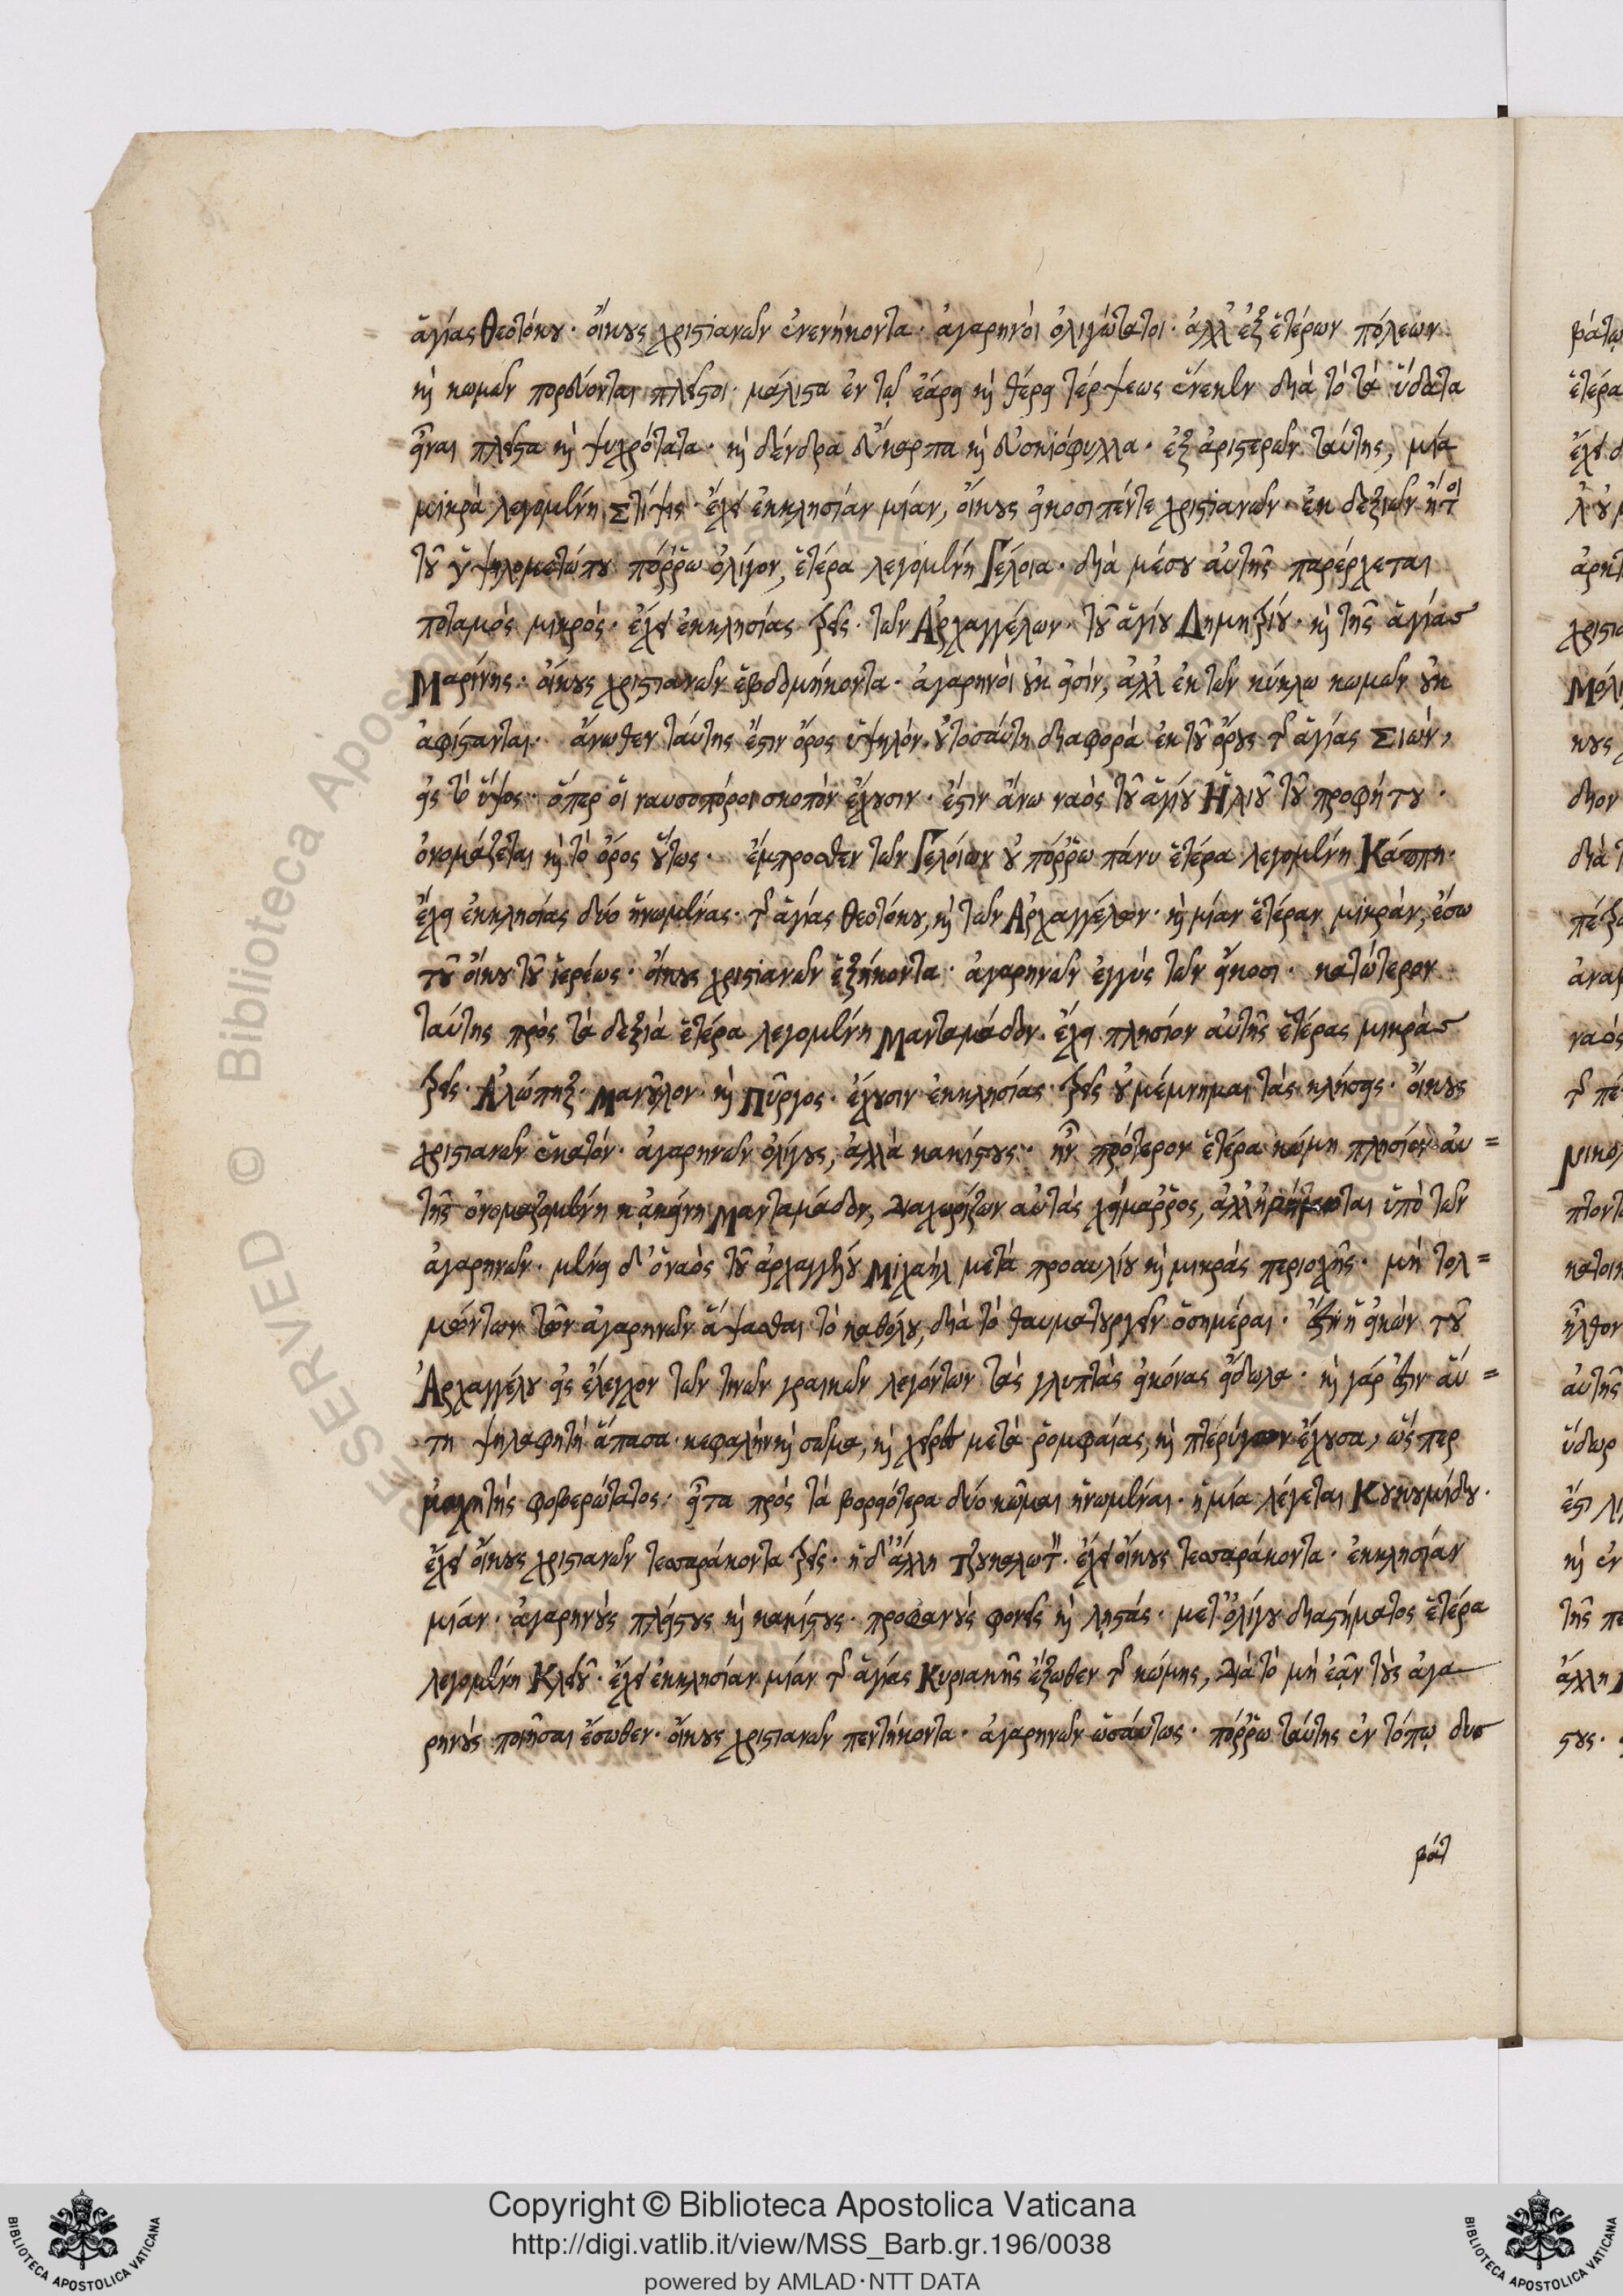 ἁγίας Θεοτόκου· οἴκους χριστιανῶν ἐνενήκοντα· ἀγαρηνοὶ ὀλιγώτατοι· ἀλλ' ἐξ ἑτέρων πόλεων
καὶ κωμῶν πορεύονται πλεῖστοι· μάλιστα ἐν τῷ ἔαρι καὶ θέρει τέρψεως ἕνεκεν διὰ τὸ τὰ ὕδατα
εἶναι πλεῖστα καὶ ψυχρότατα· καὶ δένδρα εὔκαρπα καὶ εὐσκιόφυλλα· ἐξ ἀριστερῶν ταύτης, μία
μικρὰ λεγομένη Στίψις· ἔχει ἐκκλησίαν μίαν, οἴκους εἴκοσι πέντε χριστιανῶν· ἐκ δεξιῶν ἤτοι
τοῦ ὑψηλομετώπου πόρρω ὀλίγον, ἑτέρα λεγομένη Γέλοια· διὰ μέσου αὐτῆς παρέρχεται
ποταμὸς μικρός· ἔχει ἐκκλησίας τρεῖς· τῶν Ἀρχαγγέλων· τοῦ ἁγίου Δημητρίου· καὶ τῆς ἁγίας
Μαρίνης· οἴκους χριστιανῶν ἑβδομήκοντα· ἀγαρηνοὶ οὐκ εἰσίν, ἀλλ' ἐκ τῶν κύκλω κωμῶν οὐκ
ἀφίστανται· ἄνωθεν ταύτης ἔστιν ὄρος ὑψηλόν· οὐ τοσαύτη διαφορὰ ἐκ τοῦ ὄρους τῆς ἁγίας Σιών,
εἰς τὸ ὕψος· ὅπερ οἱ ναυσοπόροι σκοπὸν ἔχουσιν· ἔστιν ἄνω ναὸς τοῦ ἁγίου Ἠλιοῦ τοῦ προφήτου·
ὀνομάζεται καὶ τὸ ὄρος οὕτως· ἔμπροσθεν τῶν Γελοίων οὐ πόρρω πάνυ ἑτέρα λεγομένη Κάππη·
ἔχει ἐκκλησίας δύο ἡνωμένας· τῆς ἁγίας Θεοτόκου, καὶ τῶν Ἀρχαγγέλων· καὶ μίαν ἑτέραν μικράν, ἔσω
τοῦ οἴκου τοῦ ἱερέως· οἴκους χριστιανῶν ἑξήκοντα· ἀγαρηνῶν ἐγγὺς τῶν εἴκοσι· κατώτερον
ταύτης πρὸς τὰ δεξιὰ ἑτέρα λεγομένη Μανταμάδον· ἔχει πλησίον αὐτῆς ἑτέρας μικρὰς
τρεῖς· Ἀλώπηξ· Μανοῦλον· καὶ Πύργος· ἔχουσιν ἐκκλησίας τρεῖς οὐ μέμνημαι τὰς κλήσεις· οἴκους
χριστιανῶν ἑκατόν· ἀγαρηνῶν ὀλίγους, ἀλλὰ κακίστους· ἦν πρότερον ἑτέρα κώμη πλησίον αὐ=
τῆς ὀνομαζομένη κἀκείνη Μανταμάδον, διαχωρίζων αὐτὰς χείμαρρος, ὑπὸ τῶν
ἀγαρηνῶν· μένει δ' ὁ ναὸς τοῦ ἀρχαγγέλου Μιχαὴλ μετὰ προαυλίου καὶ μικρᾶς περιοχῆς· μὴ τολ=
μώντων τῶν ἀγαρηνῶν ἅψασθαι τὸ καθόλου, διὰ τὸ θαυματουργεῖν ὁσημέραι· ἔστι ἡ εἰκὼν τοῦ
Ἀρχαγγέλου εἰς ἔλεγχον τῶν τινῶν γραικῶν λεγόντων τὰς γλυπτὰς εἰκόνας εἴδωλα· καὶ γάρ ἐστιν αὕ=
τη ψηλαφητὴ ἅπασα· κεφαλὴν καὶ σῶμα, καὶ χεῖρα μετὰ ῥομφαίας, καὶ πτέρυγαν ἔχουσα, ὥσπερ
μαχητὴς φοβερώτατος· εἶτα πρὸς τὰ βορειότερα δύο κῶμαι ἡνωμέναι· ἡ μία λέγεται Κουκουμίδου·
ἔχει οἴκους χριστιανῶν τεσσαράκοντα τρεῖς· ἡ δ' ἄλλη Τζουκαλωτὴ· ἔχει οἴκους τεσσαράκοντα· ἐκκλησίαν
μίαν· ἀγαρηνοὺς πλείστους καὶ κακίστους· προφανοὺς φονεῖς καὶ ληστάς· μετ' ὀλίγου διαστήματος ἑτέρα
λεγομένη Κλειοῦ· ἔχει ἐκκλησίαν μίαν τῆς ἁγίας Κυριακῆς ἔξωθεν τῆς κώμης, διὰ τὸ μὴ ἐᾶν τοὺς ἀγα
ρηνοὺς ποιῆσαι ἔσωθεν· οἴκους χριστιανῶν πεντήκοντα· ἀγαρηνῶν ὡσαύτως· πόρρω ταύτης ἐν τόπῳ δυσ
βάτ
Copyright © Biblioteca Apostolica Vaticana
http://digi.vatlib.it/view/MSS_Barb.gr.196/0038
powered by AMLAD·NTT DATA